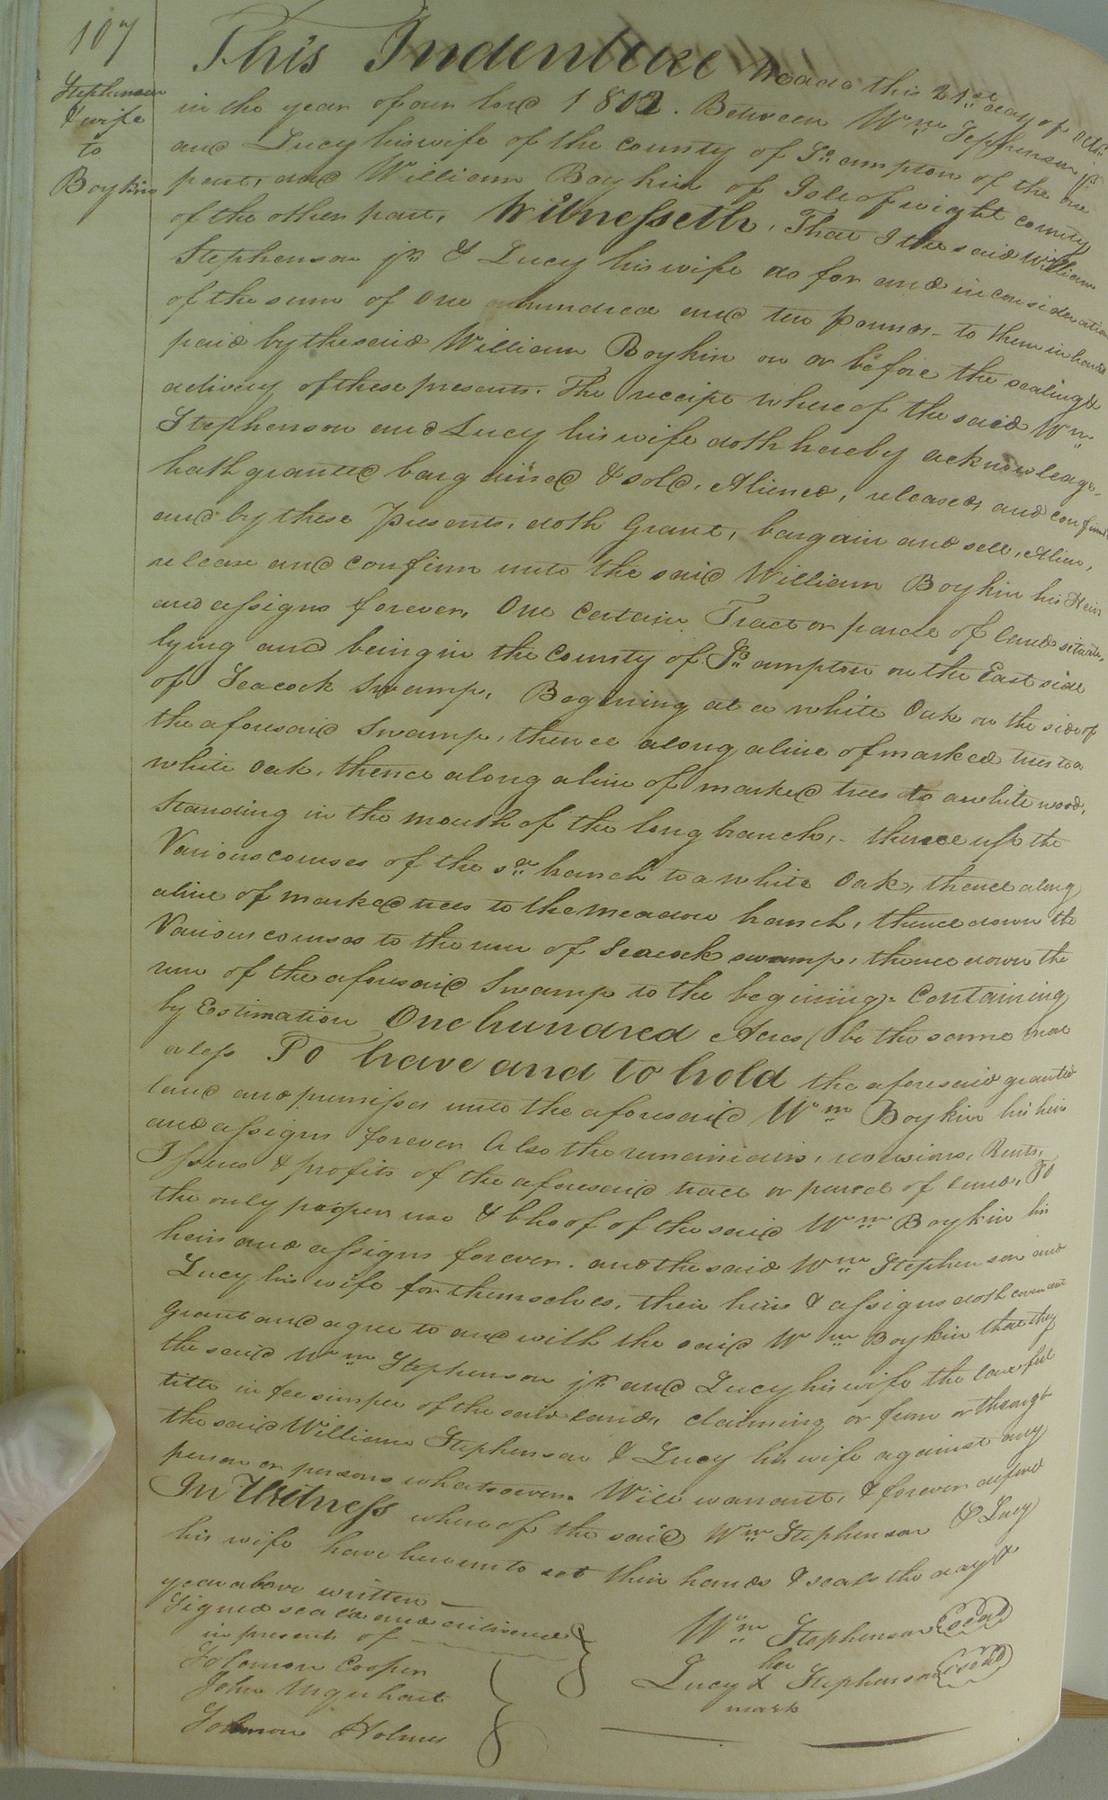 107
Stephenson
& wife
to
Boykin
This Indenture made this 21st day of Octr
in the year of our lord 1802. Between Wm Stephenson jr
and Lucy his wife of the county of So ampton of the one
part, and William Boykin of Isle of wight county
of the other part, Witnesseth, That I the said William
Stephenson jr & Lucy his wife as for and in consideration
of the sum of One hundred and ten pounds to them in hand
paid by the said William Boykin on or before the sealing &
delivery of these presents. The receipt whereof the said Wm
Stephenson and Lucy his wife doth hereby acknowledge,
hath granted bargained & sold, Aliened, released, and confirmd
and by these Presents, doth Grant, bargain and sell, Alien,
release and confirm unto the said William Boykin his Heirs
and assigns forever, One Certain Tract or parcle of land situate,
lying and being in the County of So ampton on the East side
of Seacock Swamp, Begining at a white Oak on the side of
the aforesaid Swamp, thence along a line of marked trees to a
white Oak, thence along a line of marked trees to a white wood,
Standing in the mouth of the long branch, - thence up the
Various courses of the sd branch to a white Oak, thence along
a line of marked trees to the meadow branch, thence down the
Various courses to the run of Seacock swamp, thence down the
run of the aforesaid Swamp to the begining - Containing
by Estimation One hundred Acres (be the same mor
or less To have and to hold the aforesaid granted
land and premisses unto the aforesaid Wm Boykin his heirs
and assigns forever Also the remainders, reversions, Rents,
Issues & profits of the aforesaid tract or parcel of land, To
the only proper use & bhoof of the said Wm Boykin his
heirs and assigns forever. and the said Wm Stephenson and
Lucy his wife for themselves, their heirs & assigns doth covenant
Grant and agree to and with the said Wm Boykin that they
the said Wm Stephenson jr and Lucy his wife the lawful
title in fee simper of the said land, claiming or from or through
the said William Stephenson & Lucy his wife against any
person or persons whatsoever. Will warrant, & forever defend
In Witness whereof the said Wm Stephenson & Lucy
his wife have hereunto set their hands & seals the day &
year above written
Signed seald and delivered
in presents of
Solomon Cooper
John Urquhart
Solomon Holmes
Wm Stephenson seal
her
Lucy X Stephenson seal
mark